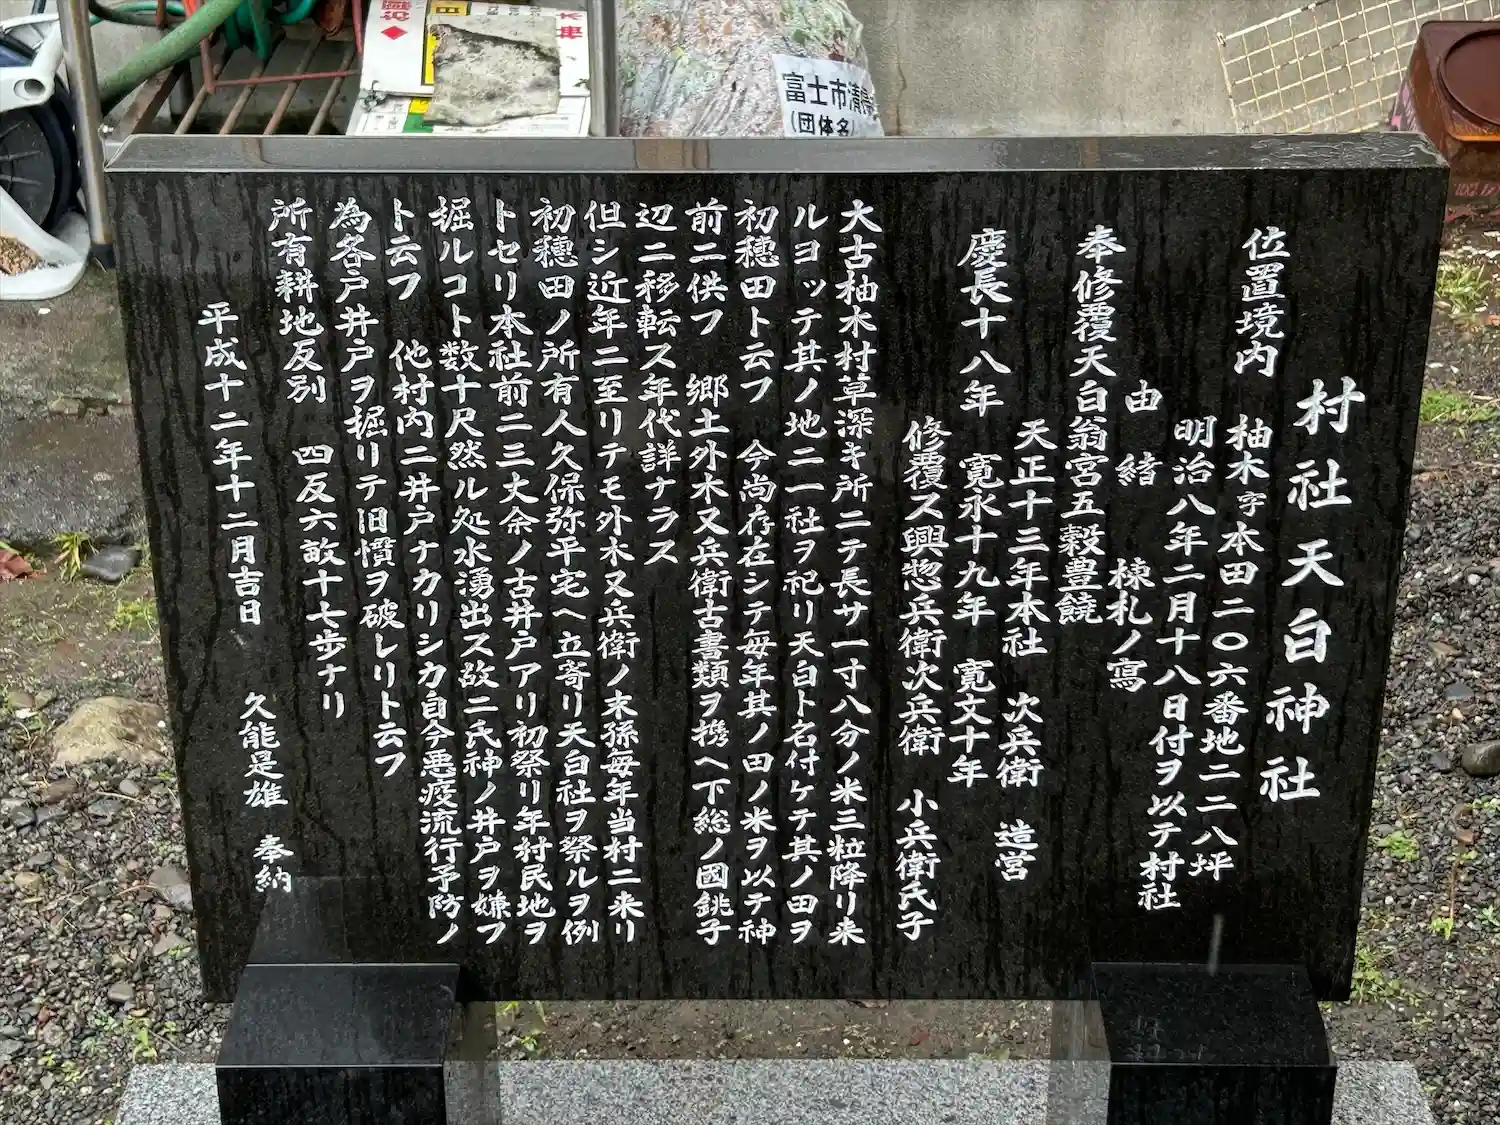 村社天白神社
位置境内　柚木字本田二〇六番地二二八坪
明治八年二月十八日付ヲ以テ村社
由緒　棟札ノ寫
奉修覆天白翁宮五穀豊饒
天正十三年本社　次兵衛　造営
慶長十八年　寛永十九年　寛文十年
修覆ス興惣兵衛次兵衛　小兵衛氏子
大古柚木村草深キ所ニテ長サ一寸八分ノ米三粒降リ来
ルヨッテ其ノ地ニ一社ヲ祀リ天白ト名付ケテ其ノ田ヲ
初穂田ト云フ　今尚存在シテ毎年其ノ田ノ米ヲ以テ神
前ニ供フ　郷土外木又兵衛古書類ヲ携ヘ下総ノ國銚子
辺ニ移転ス年代詳ナラス
但シ近年ニ至リテモ外木又兵衛ノ末孫毎年当村ニ来リ
初穂田ノ所有人久保弥平宅ヘ立寄リ天白社ヲ祭ルヲ例
トセリ本社前ニ三丈余ノ古井戸アリ初祭リ年村民地ヲ
堀ルコト数十尺然ル処水湧出ス故ニ氏神ノ井戸ヲ嫌フ
ト云フ　他村内ニ井戸ナカリシカ自今悪疫流行予防ノ
為各戸井戸ヲ堀リテ旧慣ヲ破レリト云フ
所有耕地反別　四反六畝十七歩ナリ
平成十二年十二月吉日　久能是雄　奉納
富士市清掃
(団体名)